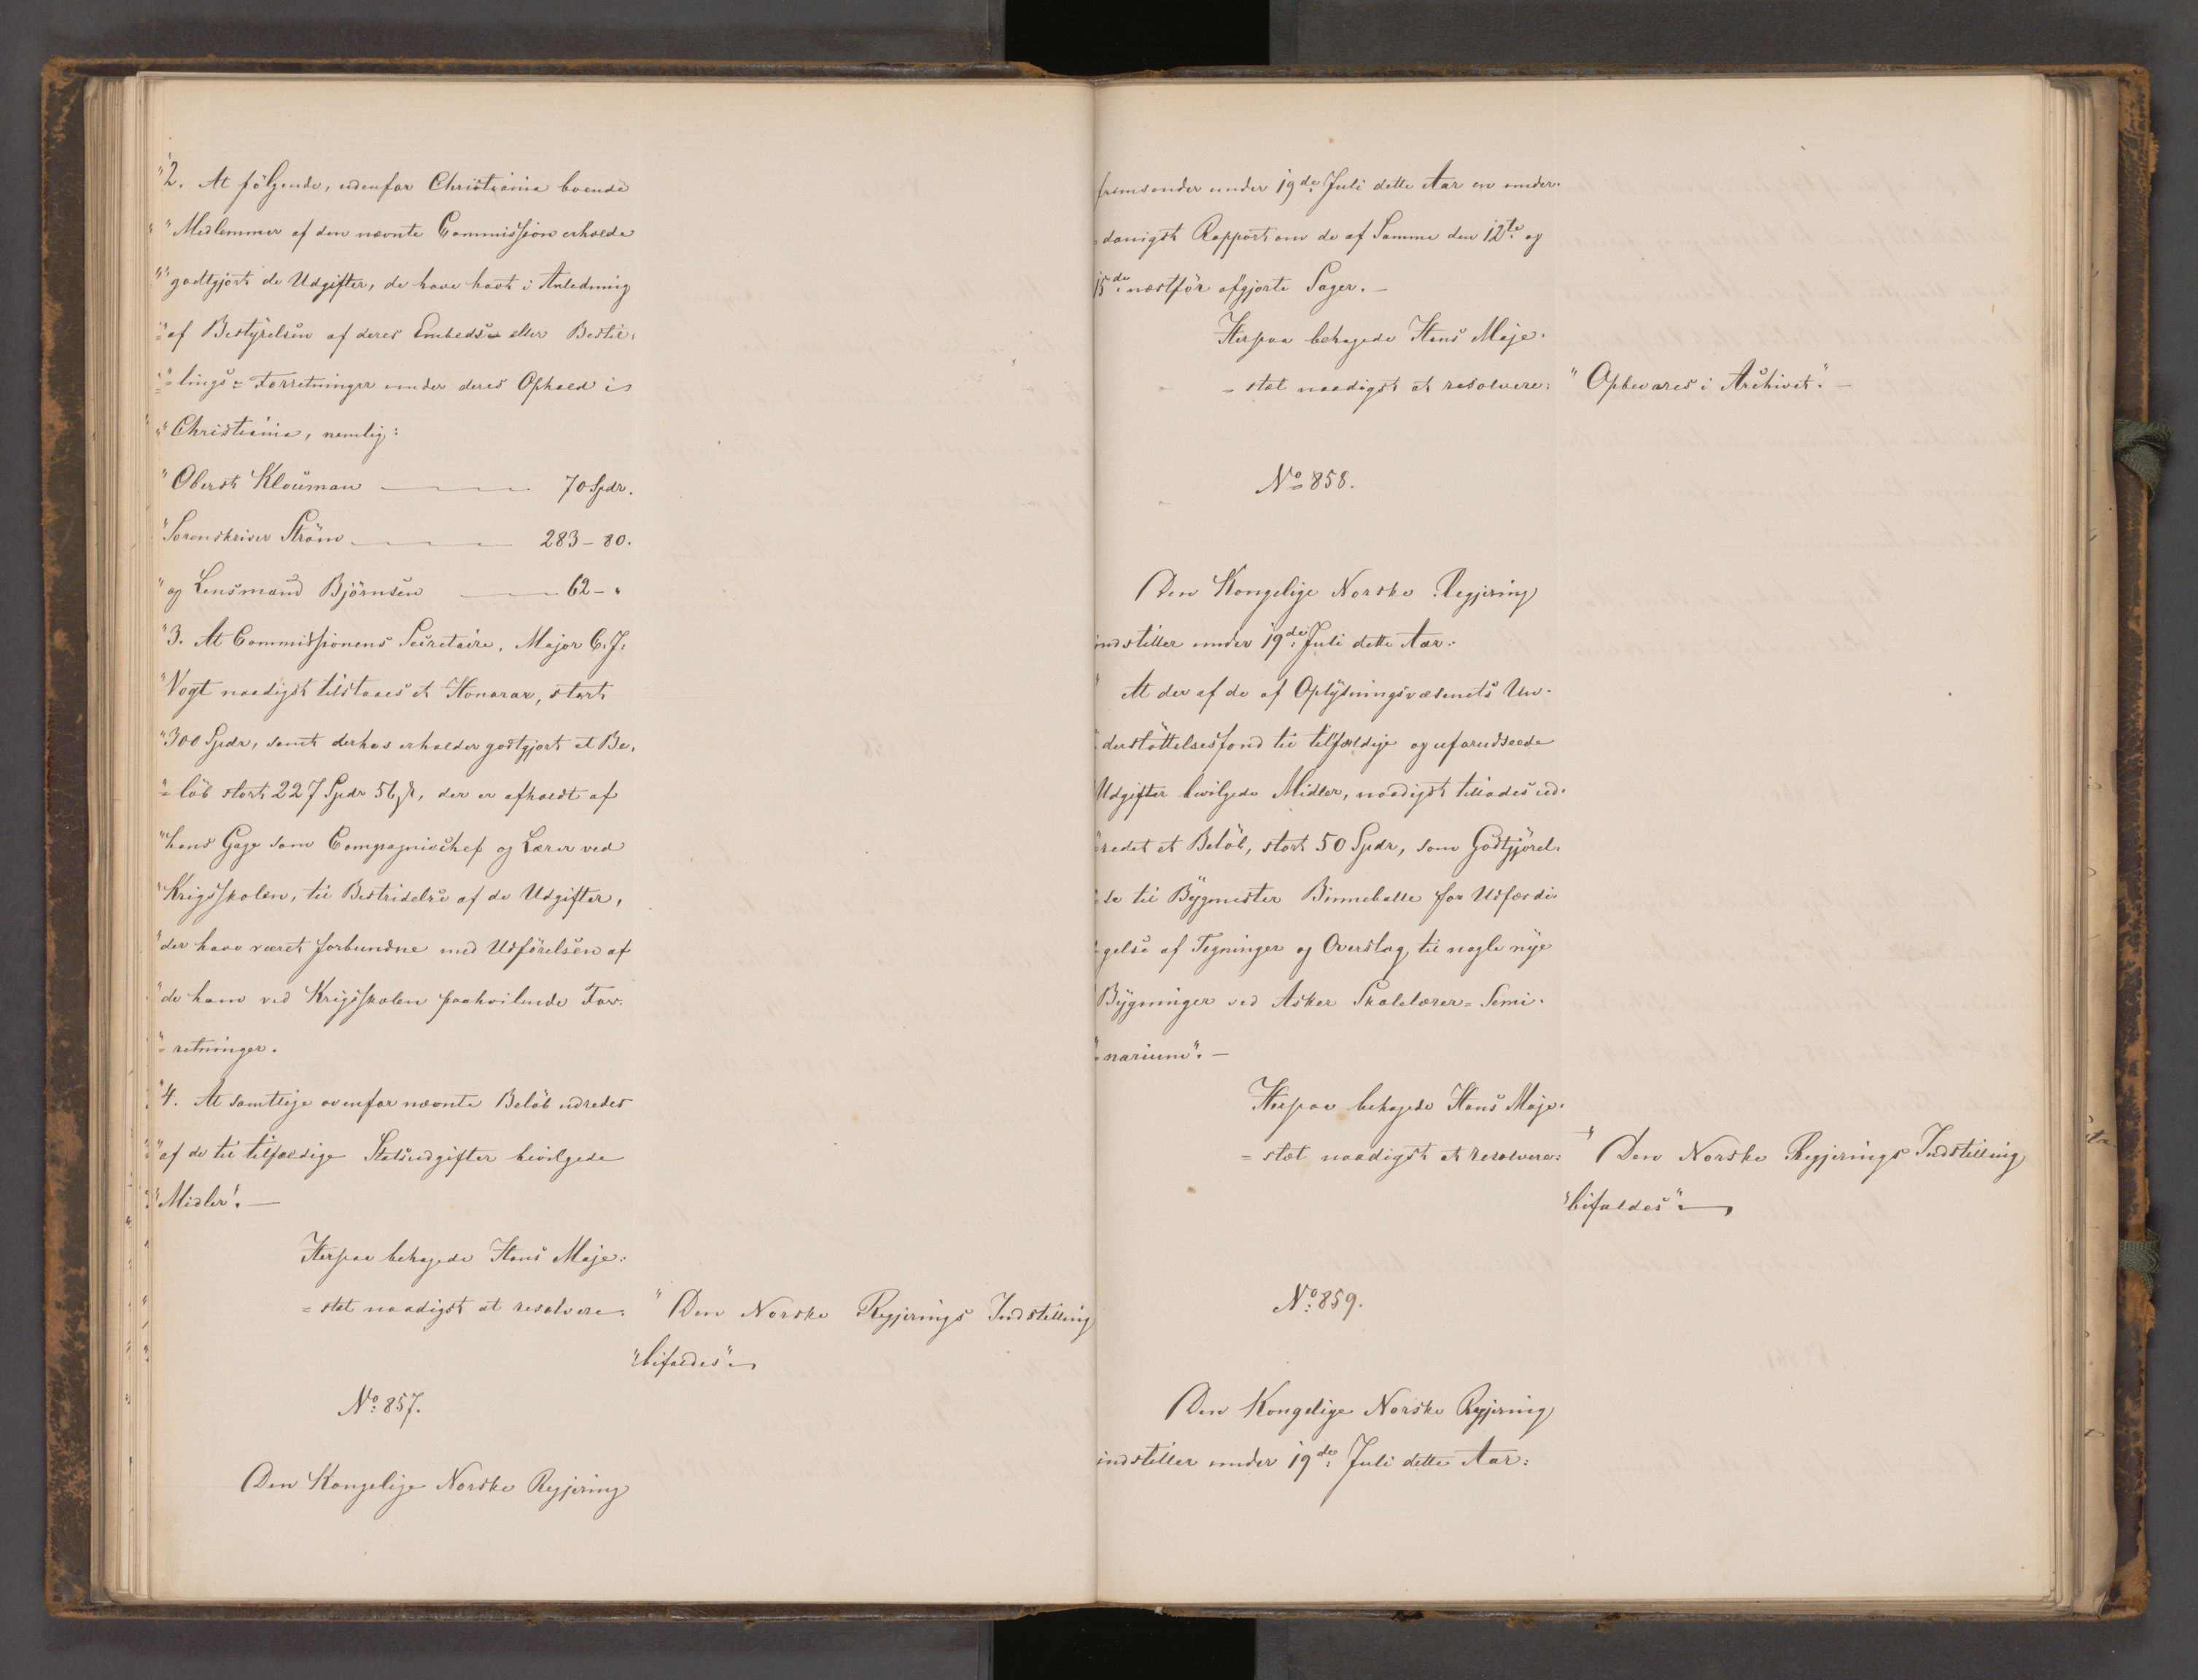 "2. At følgende, udenfor Christiania boende
"Medlemmer af den nævnte Commission erholde
"godtgjort de Udgifter, de have havt i Anledning
"af Bestyrelsen af deres Embeds= eller Bestil=
"=lings=Forretninger under deres Ophold i
"Christiania, nemlig:
"Oberst Klouman — 70 Spdr.
"Sorenskriver Strøm — 283 - 80.
"og Lensmand Bjørnsen — 62 - "
"3. At Commissionens Secretaire, Major C. J.
"Vogt naadigst tilstaaes et Honorar, stort
"300 Spdr, samt derhos erholder godtgjort et Be=
"=løb stort 227 Spdr 56 β, der er afholdt af
"hans Gage som Compagniechef og Lærer ved
"Krigsskolen, til Bestridelse af de Udgifter,
"der have været forbundne med Udførelsen af
"de ham ved Krigsskolen paahvilende For=
"=retninger.
"4. At samtlige ovenfor nævnte Beløb udredes
"af de til tilfældige Statsudgifter bevilgede
"Midler". —
Herpaa behagede Hans Maje=
=stæt naadigst at resolvere:
"Den Norske Regjerings Indstilling
"bifaldes" —
No. 857.
Den Kongelige Norske Regjering
fremsender under 19de Juli dette Aar en under=
=danigst Rapport om de af Samme den 12te og
15de næstfør afgjorte Sager. —
Herpaa behagede Hans Maje=
=stæt naadigst at resolvere:
"Opbevares i Archivet". —
No 858.
Den Kongelige Norske Regjering
indstiller under 19de Juli dette Aar:
"At der af de af Oplysningsvæsenets Un=
"derstøttelsesfond til tilfældige og uforudseede
"Udgifter bevilgede Midler, naadigst tillades ud=
"=redet et Beløb, stort 50 Spdr, som Godtgjørel=
"=se til Bygmester Binneballe for Udfærdi=
"=gelse af Tegninger og Overslag til nogle nye
"Bygninger ved Asker Skolelærer=Semi=
"=narium". —
Herpaa behagede Hans Maje=
=stæt naadigst at resolvere:
"Den Norske Regjerings Indstilling
"bifaldes" —
No. 859.
Den Kongelige Norske Regjering
indstiller under 19de Juli dette Aar: